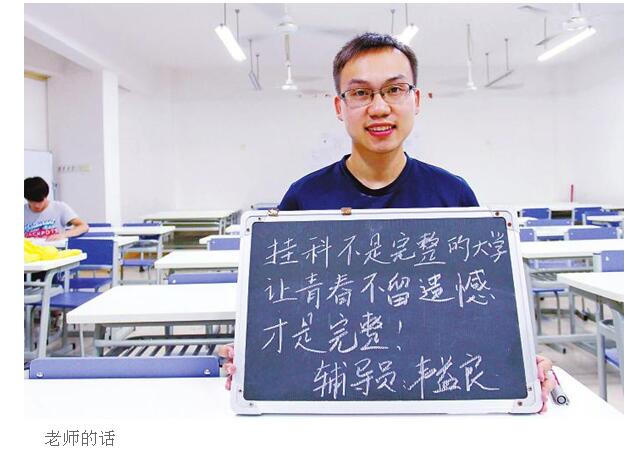 挂科不是完整的大学
让青春不留遗憾
才是完整!
辅导员:益良
老师的话